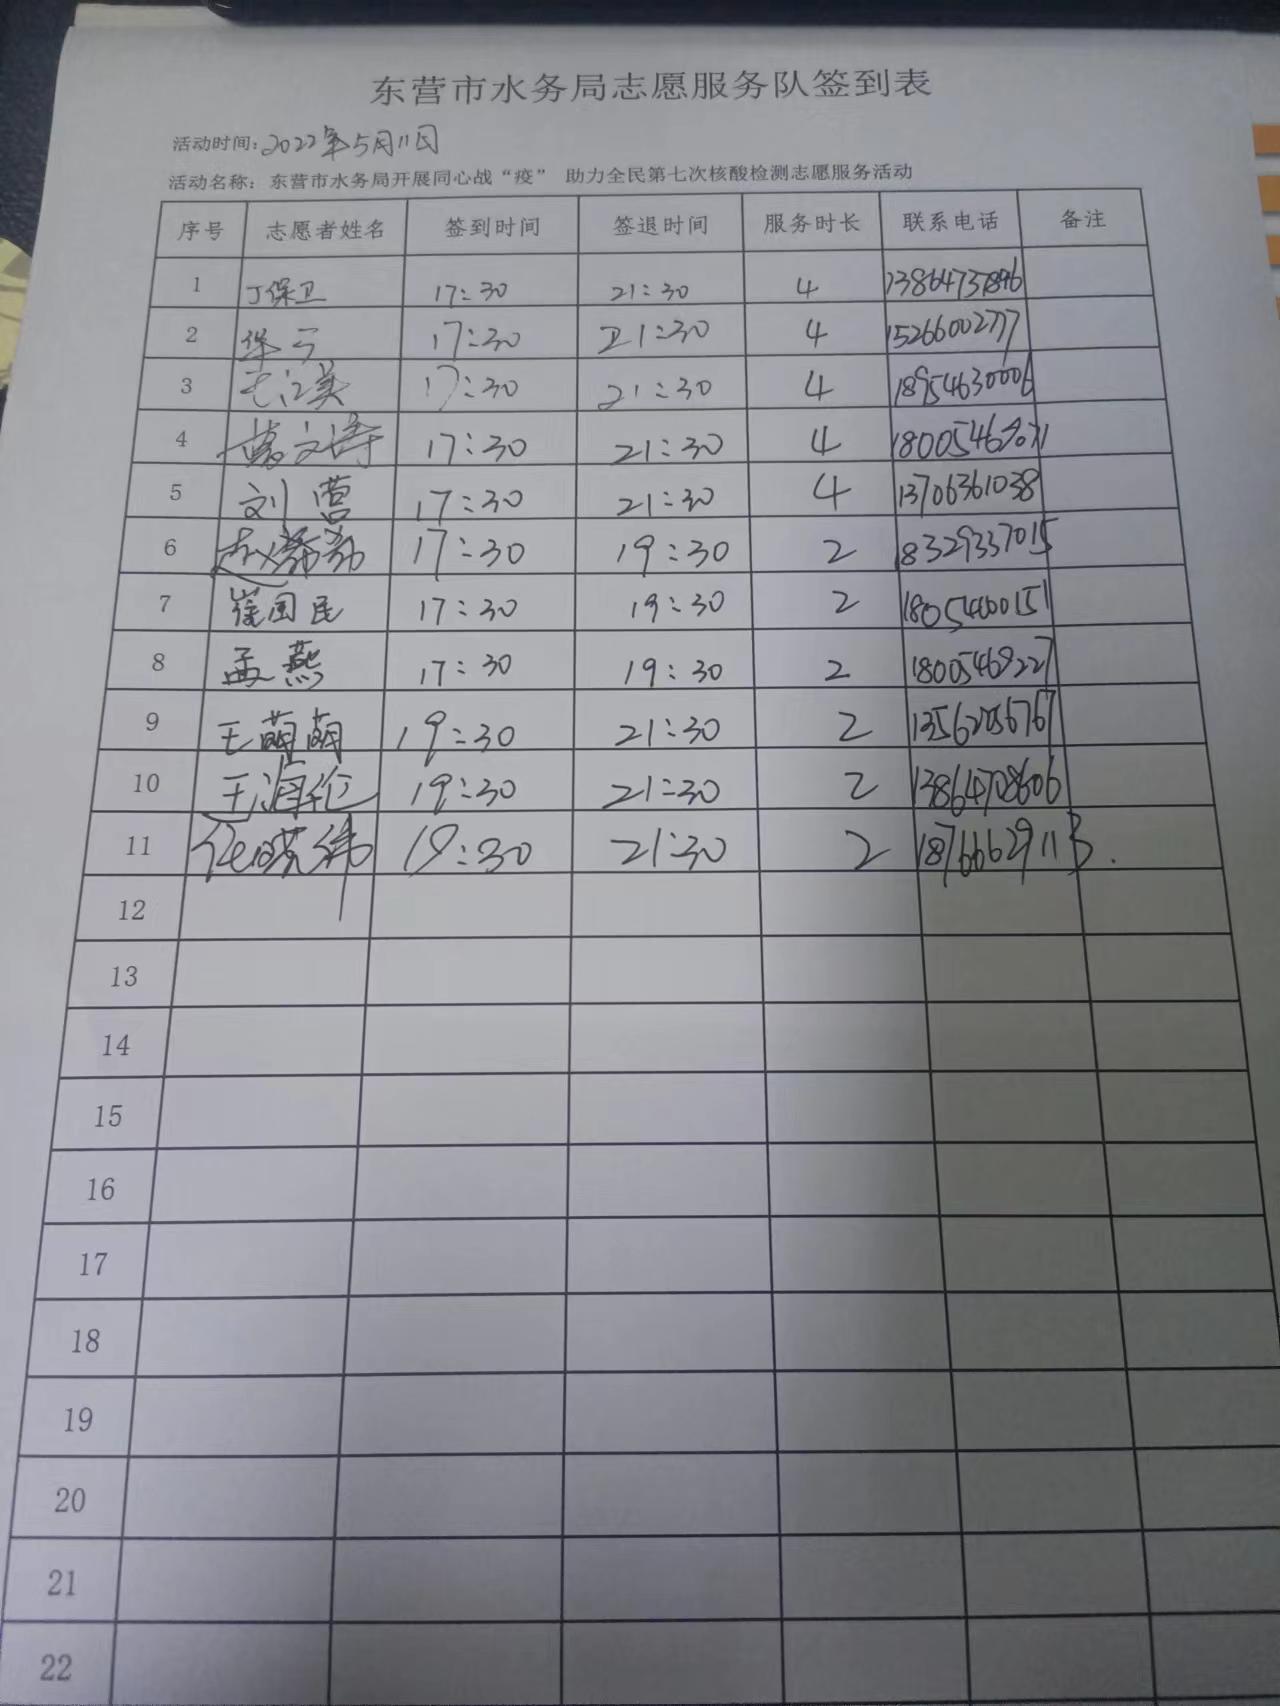 东营市水务局志愿服务队签到表
活动时间：2022年5月11日
活动名称：东营市水务局开展同心战“疫” 助力全民第七次核酸检测志愿服务活动
序号 志愿者姓名 签到时间 签退时间 服务时长 联系电话 备注
1 丁保卫 17:30 21:30 4
2 17:30 21:30 4 15266002777
3 17:30 21:30 4 18954630006
4 17:30 21:30 4
5 刘营 17:30 21:30 4 13706361038
6 17:30 19:30 2 18329337015
7 崔国民 17:30 19:30 2 18054600151
8 孟燕 17:30 19:30 2 18005469227
9 王萌萌 19:30 21:30 2
10 王润伦 19:30 21:30 2 13864708606
11 任晓纬 19:30 21:30 2 18766629113
12
13
14
15
16
17
18
19
20
21
22